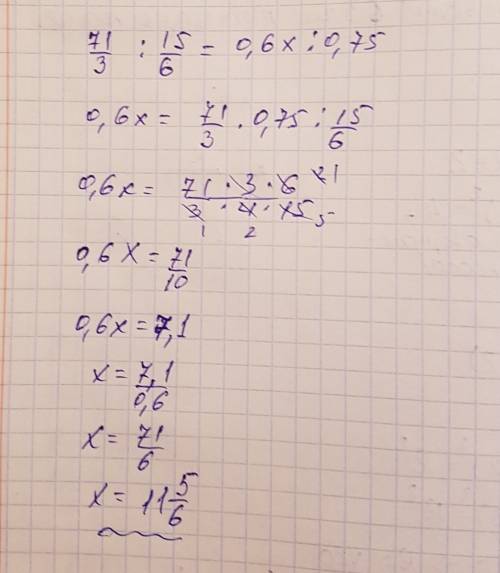 71/3 : 15/6 = 0,6x : 0,75
0,6x = 71/3 · 0,75 : 15/6
0,6x = 71 · 3 · 6 21 / 3 · 4 · 15 5
1 2
0,6x = 71/10
0,6x = 7,1
x = 7,1/0,6
x = 71/6
x = 11 5/6